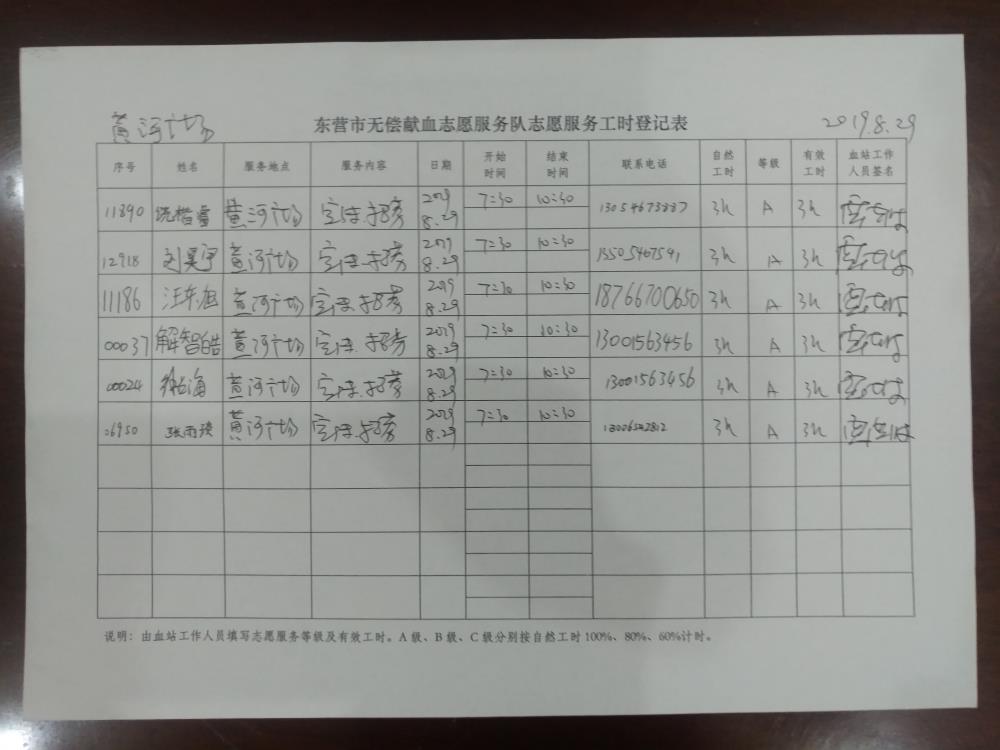 黄河广场 东营市无偿献血志愿服务队志愿服务工时登记表 2019.8.29
序号 姓名 服务地点 服务内容 日期 开始时间 结束时间 联系电话 自然工时 等级 有效工时 血站工作人员签名
11890 黄河广场 宣传.招募 2019 8.29 7:30 10:30 13054673887 3h A 3h
12918 刘昊宇 黄河广场 宣传.招募 2019 8.29 7:30 10:30 13505467591 3h A 3h
11186 汪东旭 黄河广场 宣传.招募 2019 8.29 7:30 10:30 18766700650 3h A 3h
00037 解智皓 黄河广场 宣传.招募 2019 8.29 7:30 10:30 13001563456 3h A 3h
00024 黄河广场 宣传.招募 2019 8.29 7:30 10:30 13001563456 3h A 3h
06950 张雨瑛 黄河广场 宣传.招募 2019 8.29 7:30 10:30 3h A 3h
说明：由血站工作人员填写志愿服务等级及有效工时。A级、B级、C级分别按自然工时100%、80%、60%计时。